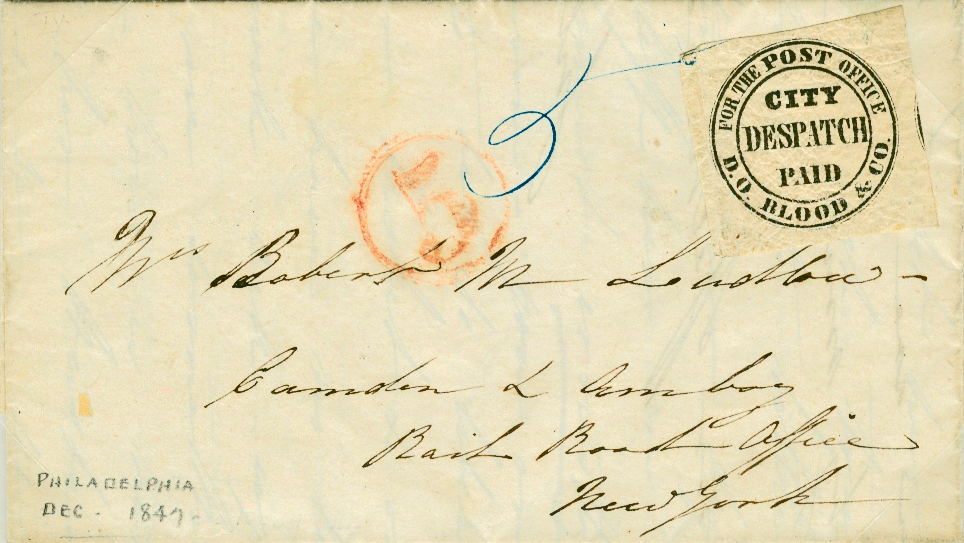 FOR THE POST OFFICE
CITY
DESPATCH
PAID
D.O. BLOOD & CO.
5
5
Mrs Robert M Ludlow -
Camden & Amboy
Rail Road Office
New York
PHILADELPHIA
DEC - 1847 -